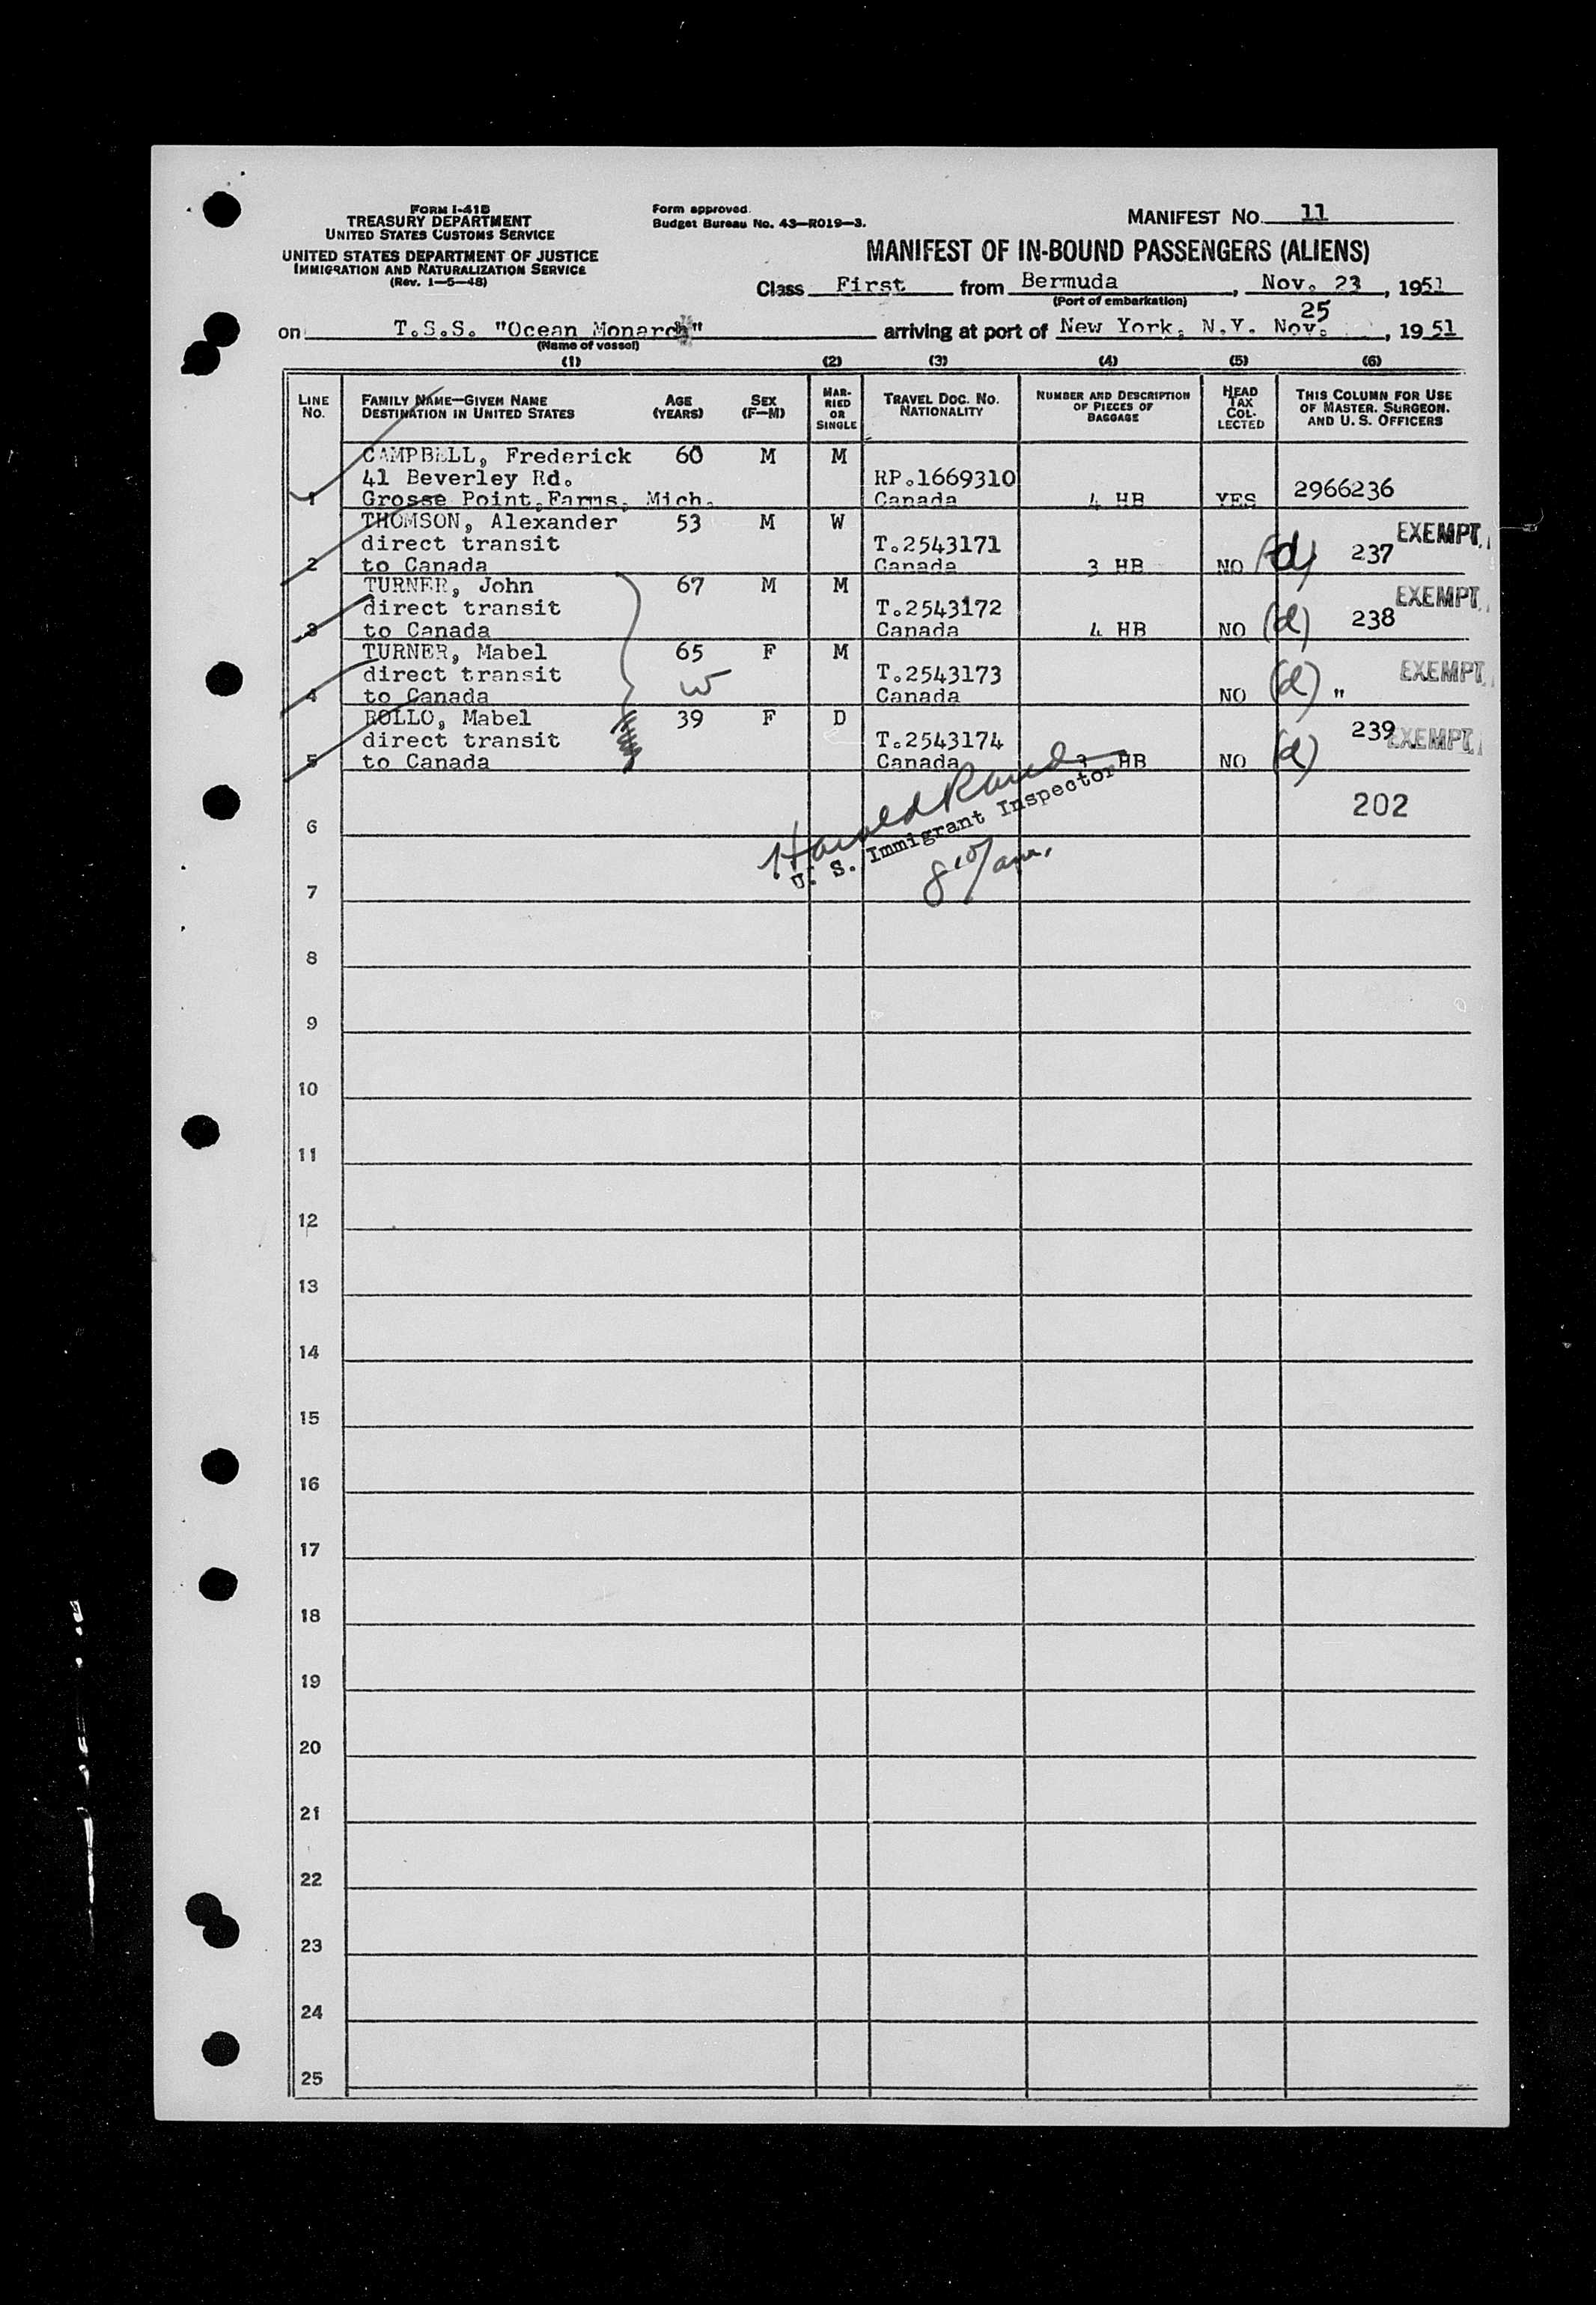 FORM I-41B
TREASURY DEPARTMENT
UNITED STATES CUSTOMS SERVICE
UNITED STATES DEPARTMENT OF JUSTICE
IMMIGRATION AND NATURALIZATION SERVICE
(Rev. 1—5—48)
Form approved.
Budget Bureau No. 43—R019—3.
MANIFEST NO. 11
MANIFEST OF IN-BOUND PASSENGERS (ALIENS)
Class First from Bermuda, Nov. 23, 1951
(Port of embarkation)
on T.S.S. "Ocean Monarch" arriving at port of New York, N.Y. Nov. 25, 1951
(Name of vessel)
(1) (2) (3) (4) (5) (6)
LINE NO.
FAMILY NAME—GIVEN NAME
DESTINATION IN UNITED STATES
AGE (YEARS)
SEX (F—M)
MAR-RIED OR SINGLE
TRAVEL DOC. NO. NATIONALITY
NUMBER AND DESCRIPTION OF PIECES OF BAGGAGE
HEAD TAX COL-LECTED
THIS COLUMN FOR USE OF MASTER, SURGEON, AND U. S. OFFICERS
CAMPBELL, Frederick 60 M M
41 Beverley Rd. RP.1669310
1 Grosse Point,Farms, Mich. Canada 4 HB YES 2966236
THOMSON, Alexander 53 M W EXEMPT
direct transit T.2543171
2 to Canada Canada 3 HB NO (d) 237
TURNER, John 67 M M EXEMPT
direct transit T.2543172
3 to Canada Canada 4 HB NO (d) 238
TURNER, Mabel 65 F M EXEMPT
direct transit W T.2543173
4 to Canada Canada NO (d) "
ROLLO, Mabel 39 F D 239 EXEMPT
direct transit T.2543174
5 to Canada Canada HB NO (d)
202
Harold
U. S. Immigrant Inspector
8 10/am.
6
7
8
9
10
11
12
13
14
15
16
17
18
19
20
21
22
23
24
25